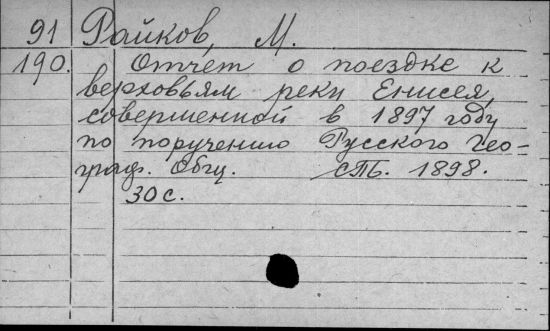 91 Райков, М.
190. Отчёт о поездке к
верховьям реки Енисея,
совершенной в 1897 году
по поручению Русского Гео-
граф. Общ. СПб. 1898.
30 с.